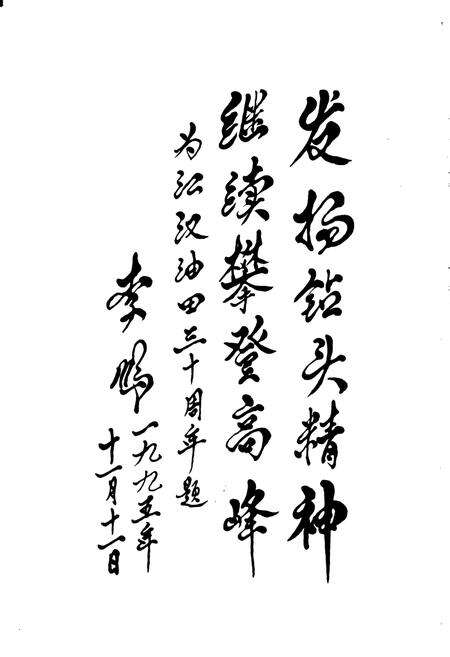 发扬钻头精神
继续攀登高峰
为江汉油田三十周年题
李鹏
一九九五年
十一月十一日